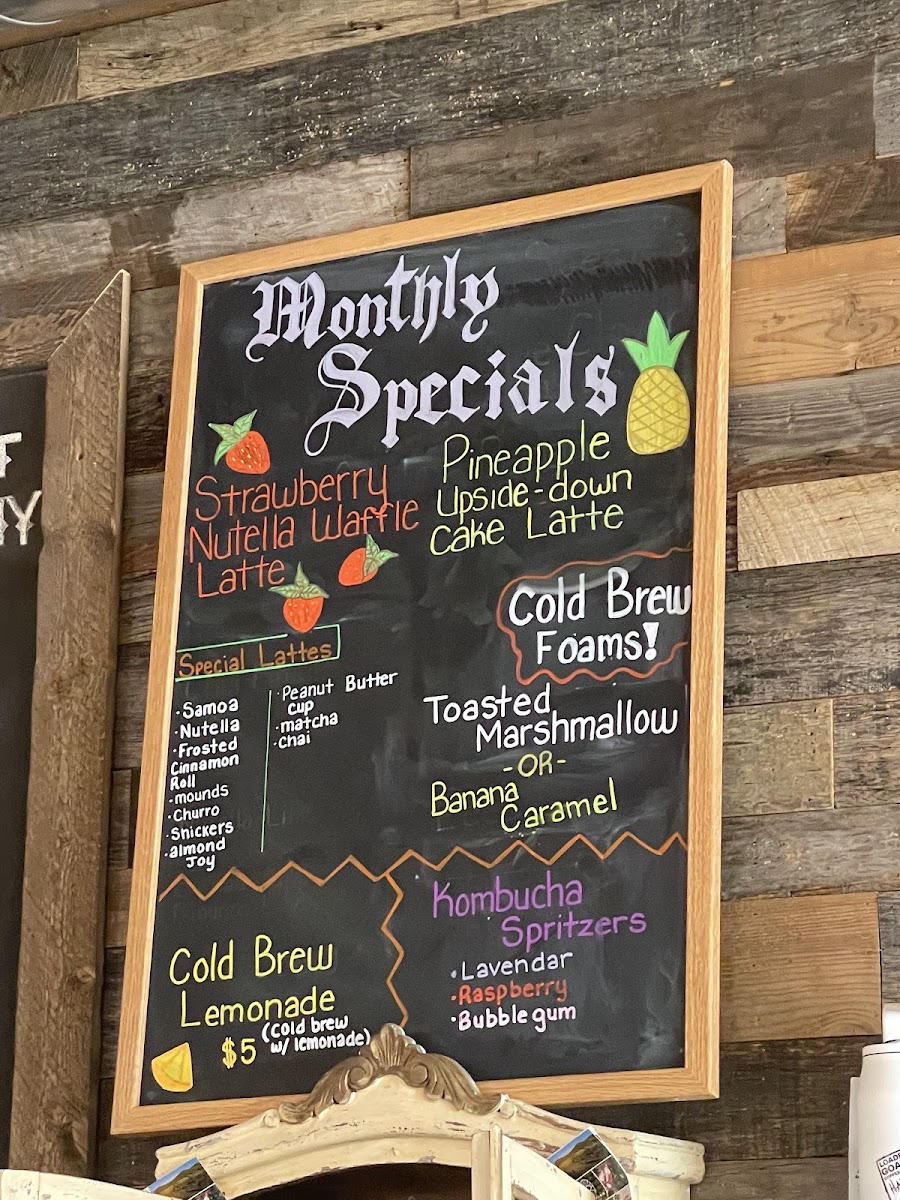 Monthly
Specials
Strawberry
Nutella Waffle
Latte
Pineapple
Upside-down
Cake Latte
Special Lattes
·Samoa
·Nutella
·Frosted
Cinnamon
Roll
·mounds
·Churro
·Snickers
·almond
Joy
·Peanut Butter
cup
·matcha
·chai
Cold Brew
Foams!
Toasted
Marshmallow
-OR-
Banana
Caramel
Cold Brew
Lemonade
$5 (cold brew
w/ lemonade)
Kombucha
Spritzers
·Lavendar
·Raspberry
·Bubblegum